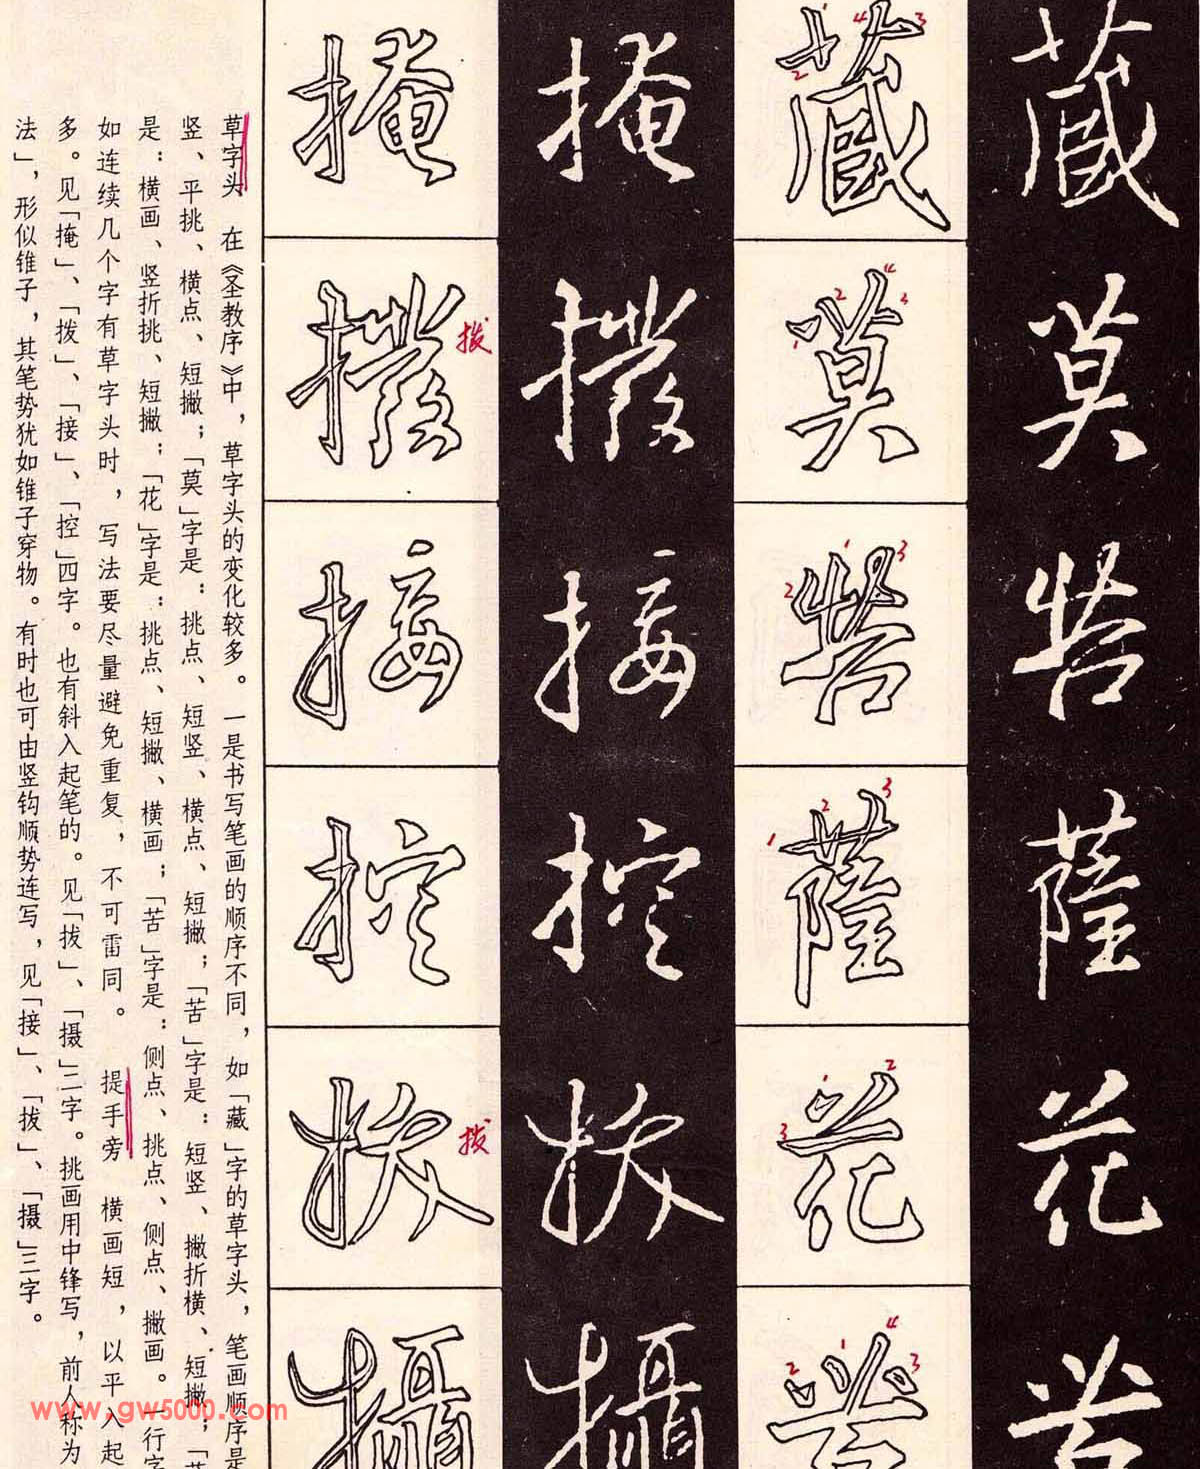 藏
莫
苦
薩
花
苦
藏
莫
苦
薩
花
苦
掩
撥
接
控
拔
攝
掩
撥
拨
接
控
拔
拔
攝
草字头　在《圣教序》中，草字头的变化较多。一是书写笔画的顺序不同，如「藏」字的草字头，笔画顺序是
竖、平挑、横点、短撇；「莫」字是：挑点、短竖、横点、短撇；「苦」字是：短竖、撇折横、短撇；「
是：横画、竖折挑、短撇；「花」字是：挑点、短撇、横画；「苦」字是：侧点、挑点、侧点、撇画。一行字
如连续几个字有草字头时，写法要尽量避免重复，不可雷同。　提手旁　横画短，以平入起
多。见「掩」、「拨」、「接」、「控」四字。也有斜入起笔的。见「拔」、「摄」二字。挑画用中锋写，前人称为
法」，形似锥子，其笔势犹如锥子穿物。有时也可由竖钩顺势连写，见「接」、「拔」、「摄」三字。
www.gw5000.com